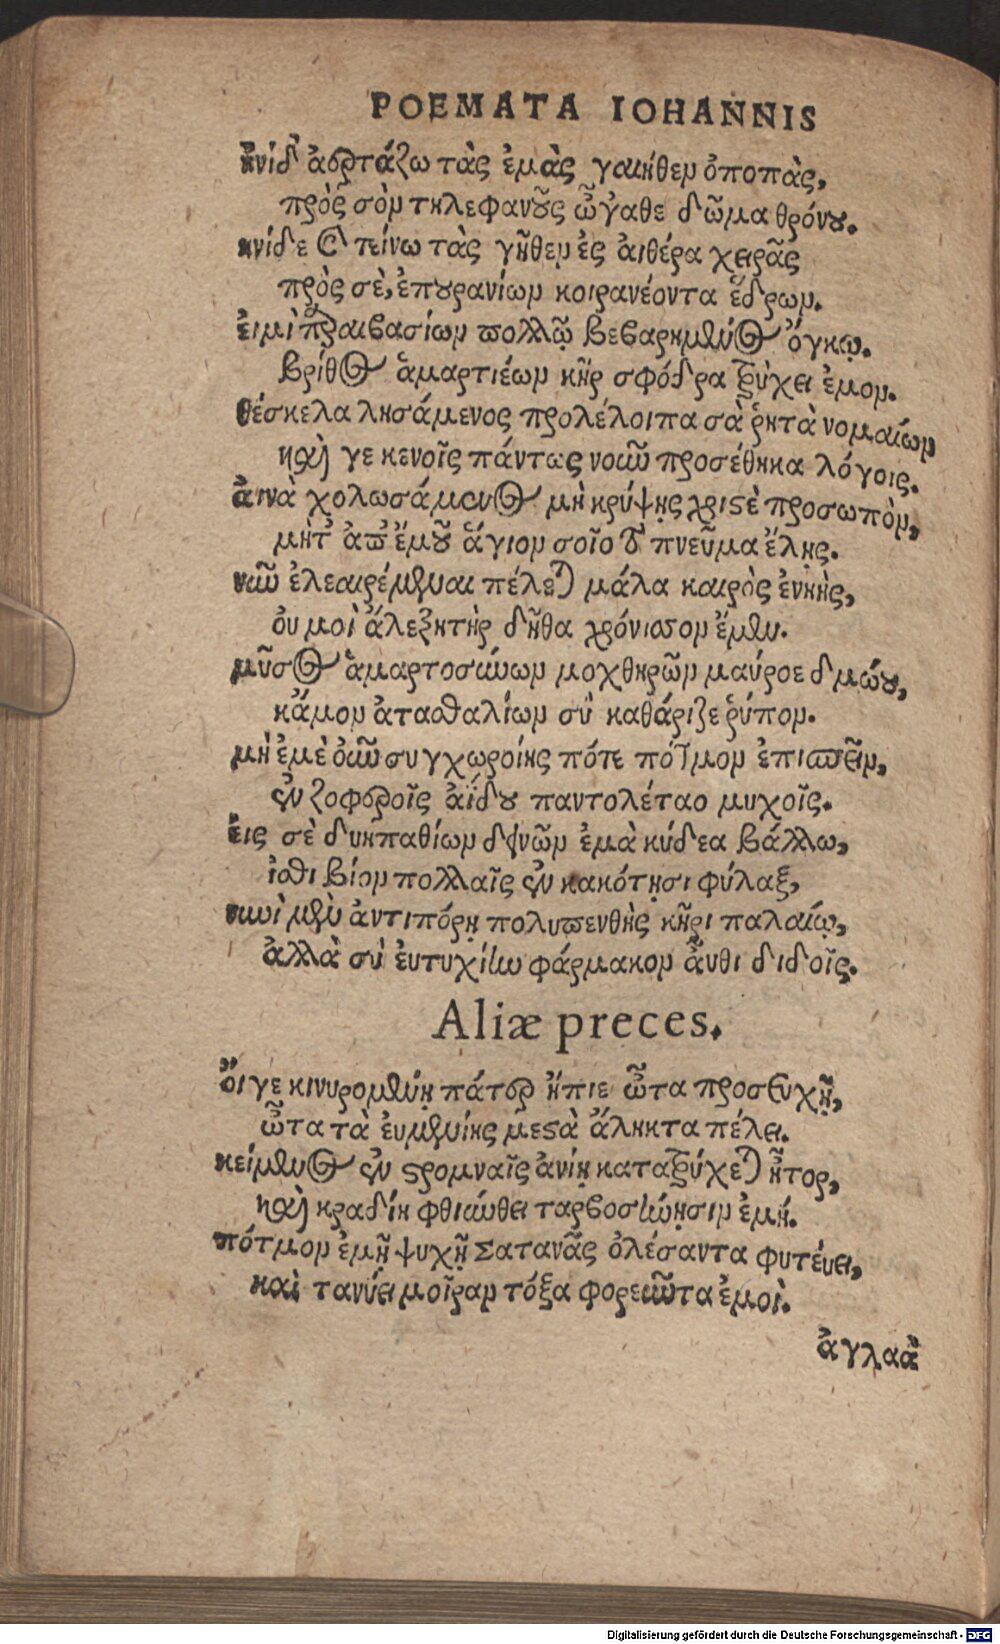 POEMATA IOHANNIS
ἠνίδ' ἀερτάζω τὰς ἐμὰς γαιήθεν ὀποπὰς,
πρὸς σὸν τηλεφανοῦς ὦ'γαθε δῶμα θρόνου.
ἠνίδε τείνω τὰς γῆθεν ἐς ἀιθέρα χειρᾶς
πρὸς σὲ, ἐπουρανίων κοιρανέοντα ἕδρων.
ἐιμὶ παραιβασίων πολλῷ βεβαρημένος ὄγκῳ.
βρίθος ἁμαρτιέων κῆρ σφόδρα τρύχει ἐμον.
θέσκελα λησάμενος προλέλοιπα σὰ ῥητὰ νομαίων
καὶ γε κενοῖς πάντως νοῦν προσέθηκα λόγοις.
ἀινὰ χολωσάμενος μὴ κρύψῃς χριστὲ προσωπὸν,
μὴτ' ἀπ' ἐμοῦ ἅγιον σοῖο τὸ πνεῦμα ἕλῃς.
νῦν ἐλεαιρέμεναι πέλεται μάλα καιρὸς ἐνηὴς,
ὀυ μοὶ ἀλεξητὴρ δῆθα χρόνιστον ἔμεν.
μῦσος ἁμαρτοσύνων μοχθηρῶν μαύροε δμώου,
κᾄμον ἀτασθαλίων σὺ καθάριζε ῥύπον.
μὴ ἐμὲ οὖν συγχωροίης πότε πότμον ἐπισπεῖν,
ἐν ζοφεροῖς ἀΐδου παντολέταο μυχοῖς.
ἐις σὲ δυηπαθίων δεινῶν ἐμὰ κύδεα βάλλω,
ἰσθι βίον πολλαῖς ἐν κακότησι φύλαξ,
νωὶ μὲν ἀντιπόρῃ πολυπενθὴς κῆρι παλαίῳ,
ἀλλὰ σὺ ἐυτυχίην φάρμακον ἆυθι διδοῖς.
Aliæ preces.
Ὄιγε κινυρομένῃ πάτερ ἤπιε ὦτα προσευχῇ,
ὦτα τὰ ἐυμενίης μεστὰ ἄληκτα πέλει.
κείμενος ἐν στρομναῖς ἀνίῃ κατατρύχεται ἦτορ,
καὶ κραδίη φθινύθει ταρβοσύνῃσιν ἐμή.
πότμον ἐμῇ ψυχῇ Σατανᾶς ὀλέσαντα φυτέυει,
καὶ τανύει μοῖραν τόξα φορεῦντα ἐμοὶ.
ἀγλαὰ
Digitalisierung gefördert durch die Deutsche Forschungsgemeinschaft - DFG